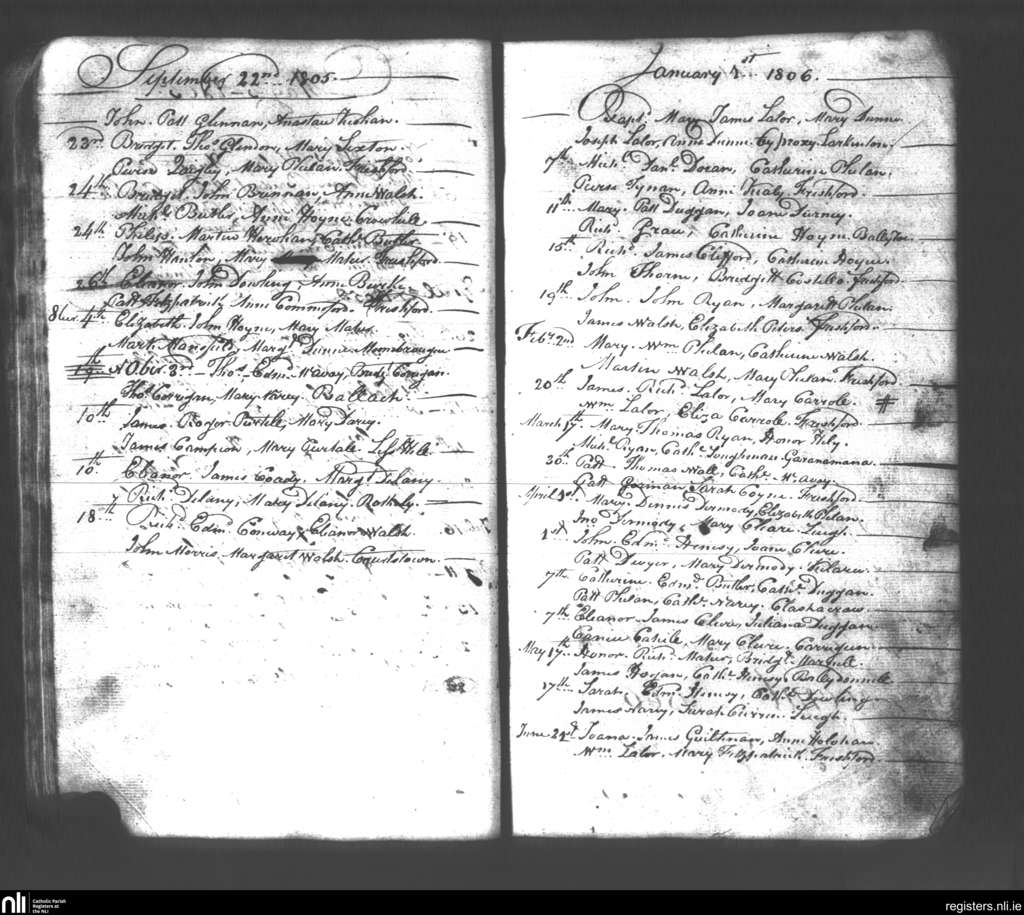 September 22nd 1805.
John. Patt Glennan, Anastau
23rd Bridget. Thos. Glendon, Mary Sexton.
Pierse Quigley, Mary Phelan, Freshford
24th Bridget. John Brennan, Anne Walsh.
Michl. Butler, Anne Hoyne
24th Philip. Martin Cathe. Butler
John Hanlon, Mary Maher Freshford.
26th Eleanor. John Dowling Anne Burke
Patt Fitzpatrick, Anne Commiford. Freshford.
8ber. 4th Elizabeth. John Hoyne, Mary Maher.
Mark Hansfield, Margt. Dunne
19th Thos. Edmd. McAvoy, Bridgt. Corrigan.
Thos. Corrigan, Mary Ballach
10th James. Roger Purtle, Mary Darcy.
James Campion, Mary Hill
16th Eleanor. James Coady, Margt. Delany.
Richd. Delany, Mary Delany
18th Richd. Edmd. Conway, Eleanor Walsh.
John Morris, Margaret Walsh. Courtstown.
January 1st 1806.
Bapt. Mary James Lalor, Mary Dunne
Joseph Lalor, Anne Dunne by proxy.
7th Michl. Danl. Doran, Catherine Phelan.
Pierse Tynan, Anne Healy Freshford.
11th Mary. Patt Duggan, Joan
Richd. Catherine Hoyne
15th Richd. James Clifford, Catherine Hoyne.
John Thorne, Bridgett Costelo. Freshford.
19th John. John Ryan, Margarett Phelan.
James Walsh, Elizabeth Peters. Freshford.
Feby. 2nd Mary. Wm. Phelan, Catherine Walsh.
Martin Walsh, Mary Phelan. Freshford
20th James. Richd. Lalor, Mary Carrole. #
Wm. Lalor, Eliza Carrole. Freshford.
March 17th Mary. Thomas Ryan, Honor
Michl. Ryan, Cathe. Loughman
30th Patt. Thomas Wall, Cathe. McAvoy.
Patt Sarah Coyne. Freshford.
April 1st Mary. Dennis Dermody, Elizabeth Phelan.
Jno. Dermody, Mary Cleare.
1st John. Edmd. Henesy, Joane Clere.
Patt Dwyer, Mary Dermody.
7th Catherine. Edmd. Butler, Cathe. Duggan.
Patt Phelan, Cathe. Nary. Clashacraw
7th Eleanor James Clere, Juliana Duggan
Cahile, Mary Clere.
May 17th Honor. Richd. Maher, Bridgt.
James Hogan, Cathe. Henesy,
17th Sarah. Edmd. Henesy, Cathe. Dowling
James Nary, Sarah
June 24th Joana. James Anne Holohan.
Wm. Lalor, Mary Fitzpatrick. Freshford
nli
Catholic Parish
Registers at
the NLI
registers.nli.ie